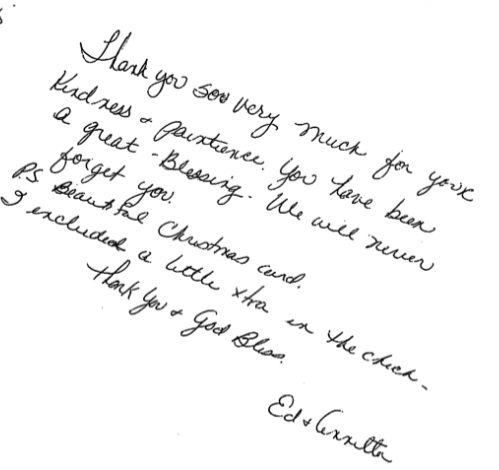 Thank you soo very much for your
Kindness + paintience. You have been
a great - Blessing. We will never
forget you.
PS Beautiful Christmas card.
I excluded a little xtra in the check -
Thank You + God Bliss.
Ed +